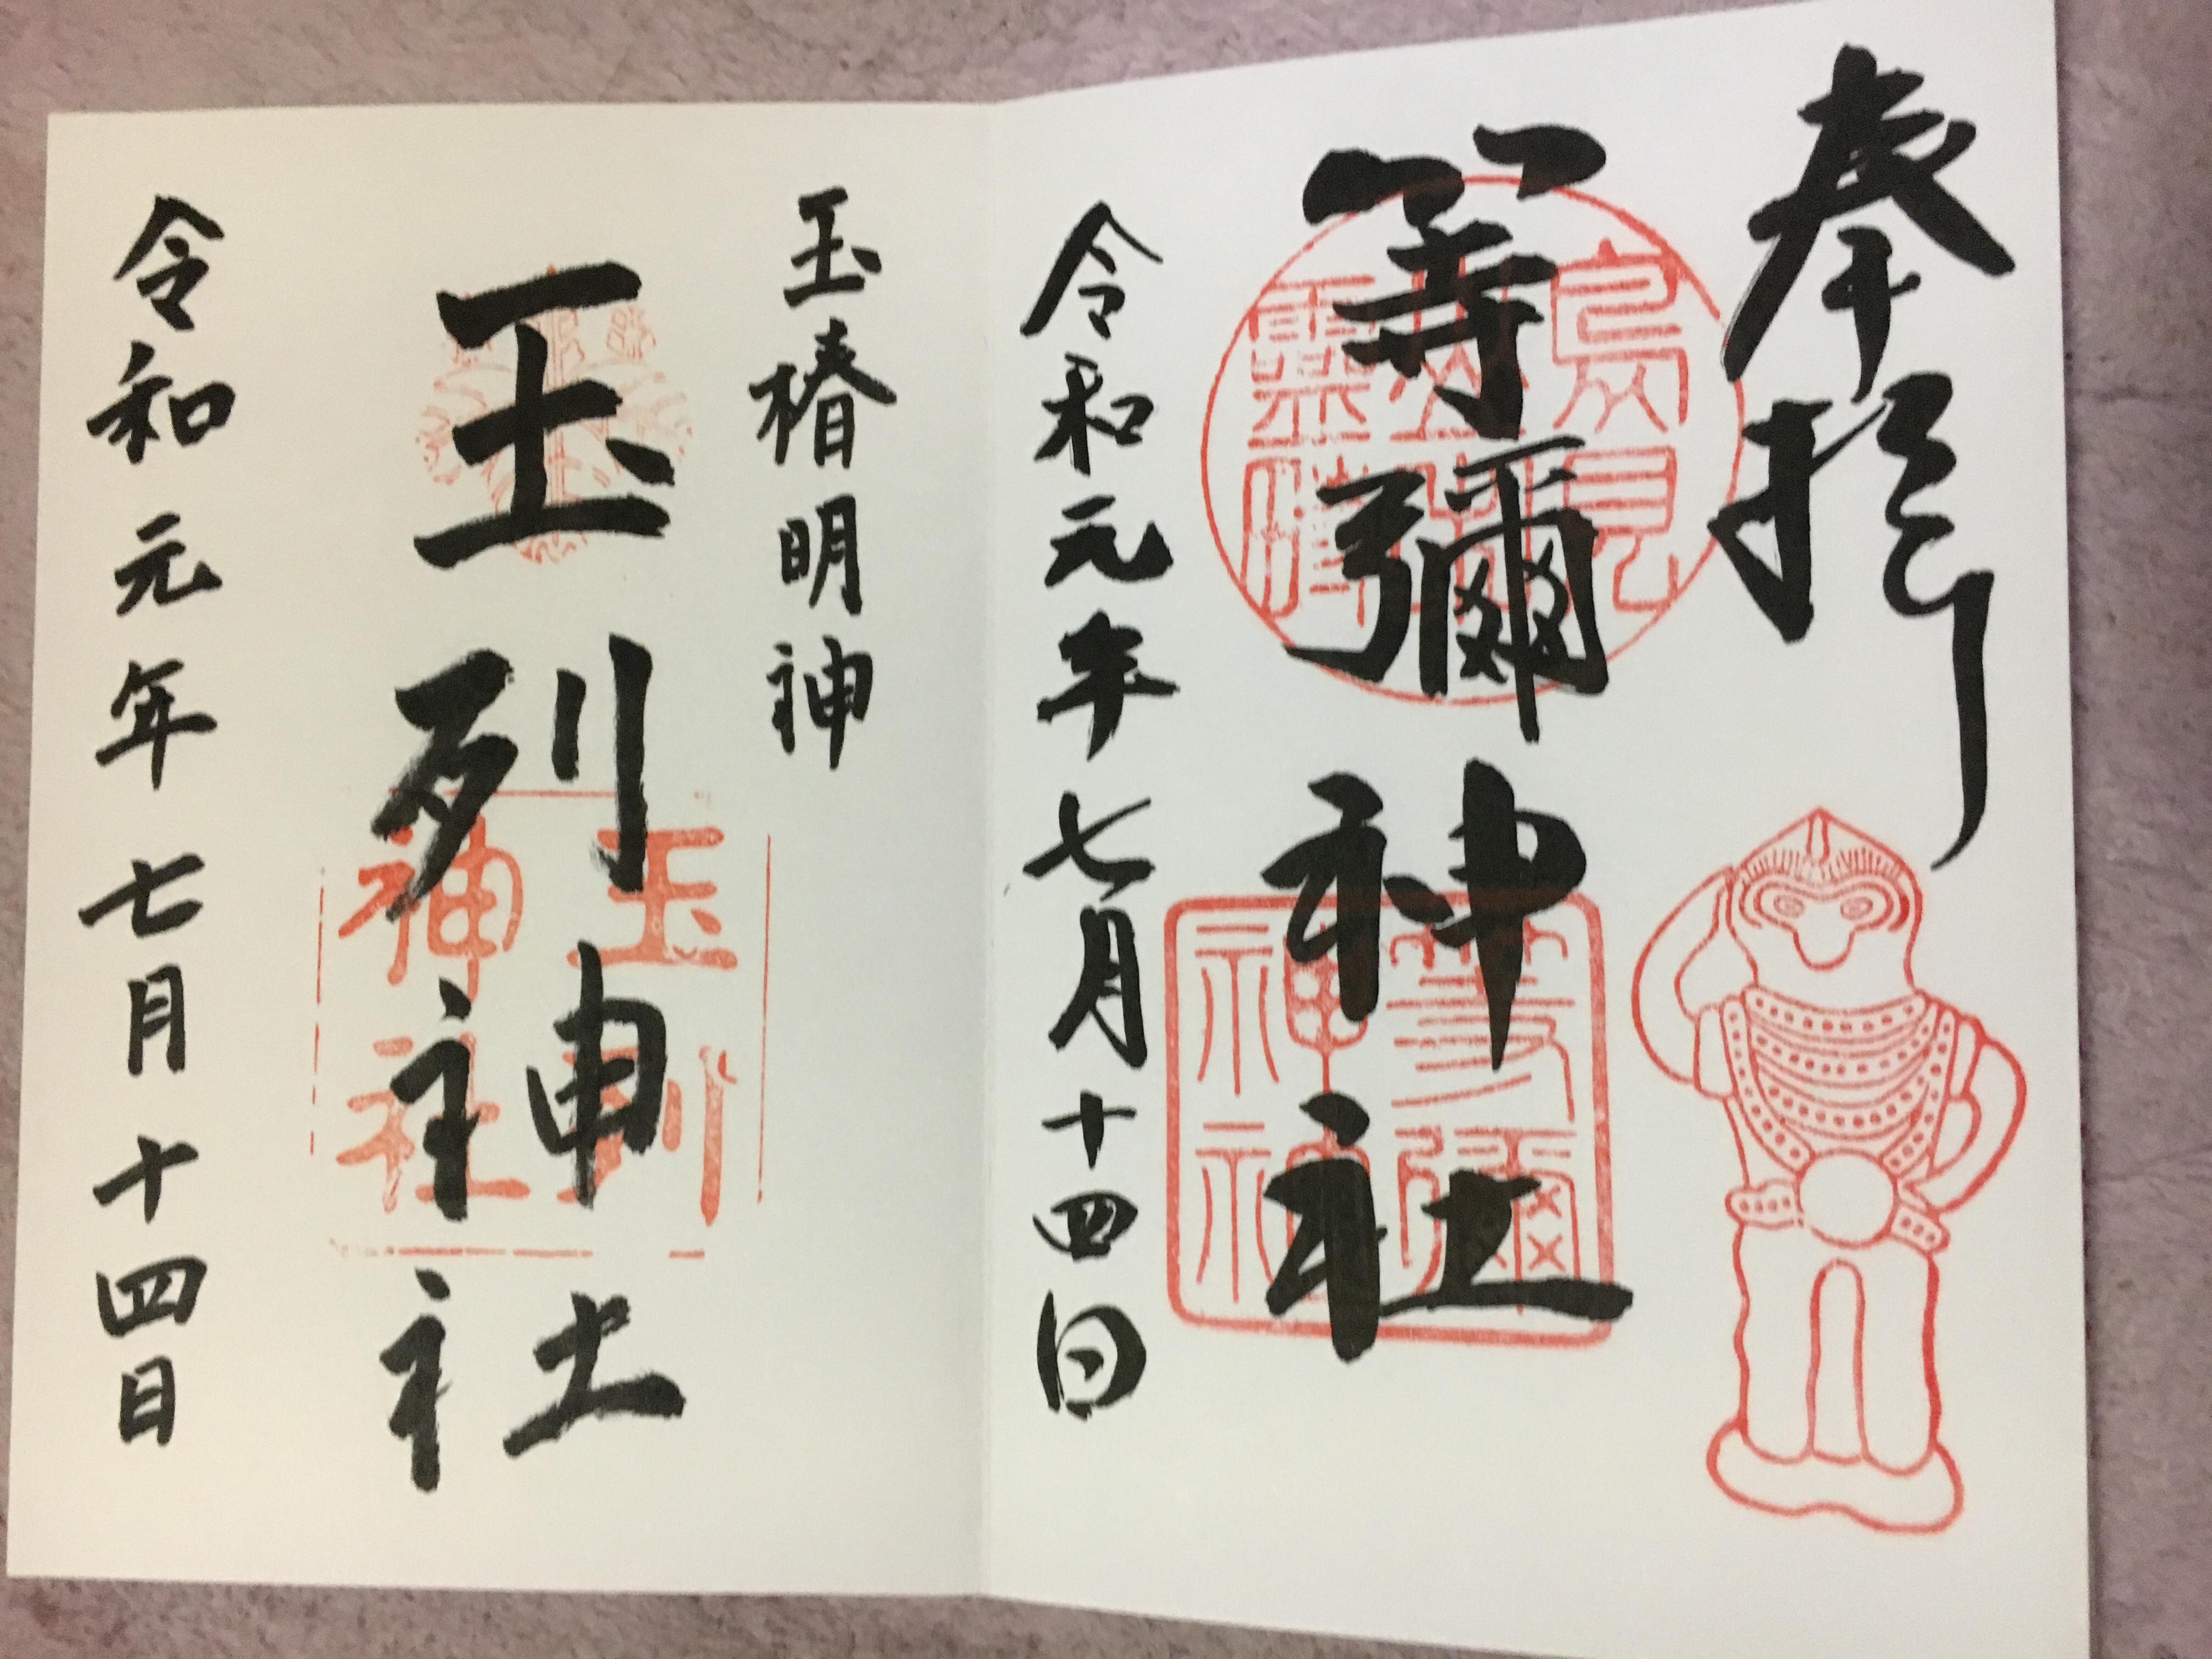 奉拝
等彌神社
令和元年七月十四日
等彌神社
玉椿明神
玉列神社
玉列神社
令和元年七月十四日